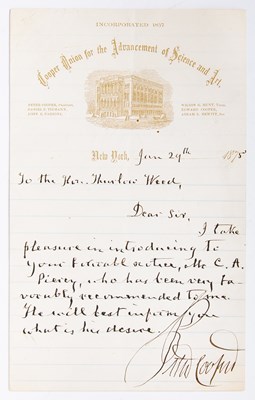 INCORPORATED 1857
Cooper Union for the Advancement of Science and Art,
PETER COOPER, President
DANIEL F. TIEMANN,
JOHN E. PARSONS,
WILSON G. HUNT, Treas.
EDWARD COOPER,
ABRAM S. HEWITT, Sec.
New York, Jan 29th 1875
To the Hon. Thurlow Weed,
Dear Sir,
I take
pleasure in introducing to
your favorable notice, Mr C. A.
Piercy, who has been very fa-
vorably recommended to me.
He will best inform you
what is his desire.
Peter Cooper